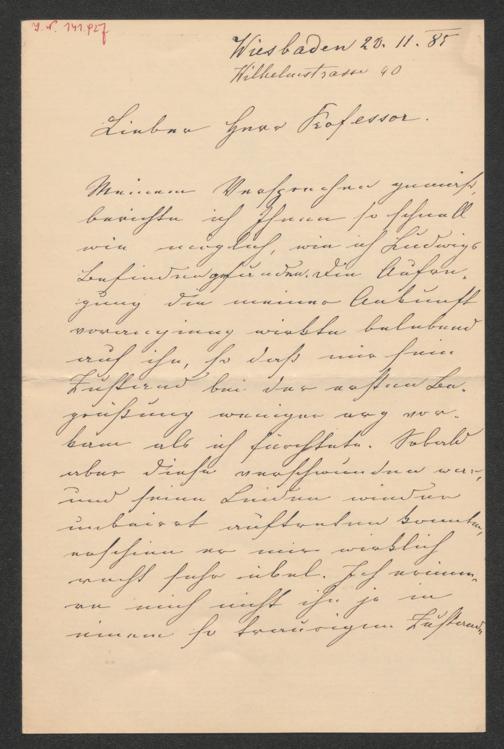 J. N. 141.927
Wiesbaden 20. 11. 85
Wilhelmstrasse 40
Lieber Herr Professor.
Meinem Versprechen gemäß,
berichte ich Ihnen so schnell
wie möglich, wie ich Ludwigs
Befinden gefunden. Die Aufre-
gung die meiner Ankunft
voranging wirkte belebend
auf ihn, so daß mir sein
Zustand bei der ersten Be-
grüßung weniger arg vor-
kam als ich fürchtete. Sobald
aber diese verschwunden war,
und seine Leiden wieder
unbeirrt auftreten konnten,
erschien er mir wirklich
recht sehr übel. Ich erinne-
re mich nicht ihn je in
einem so traurigen Zustande